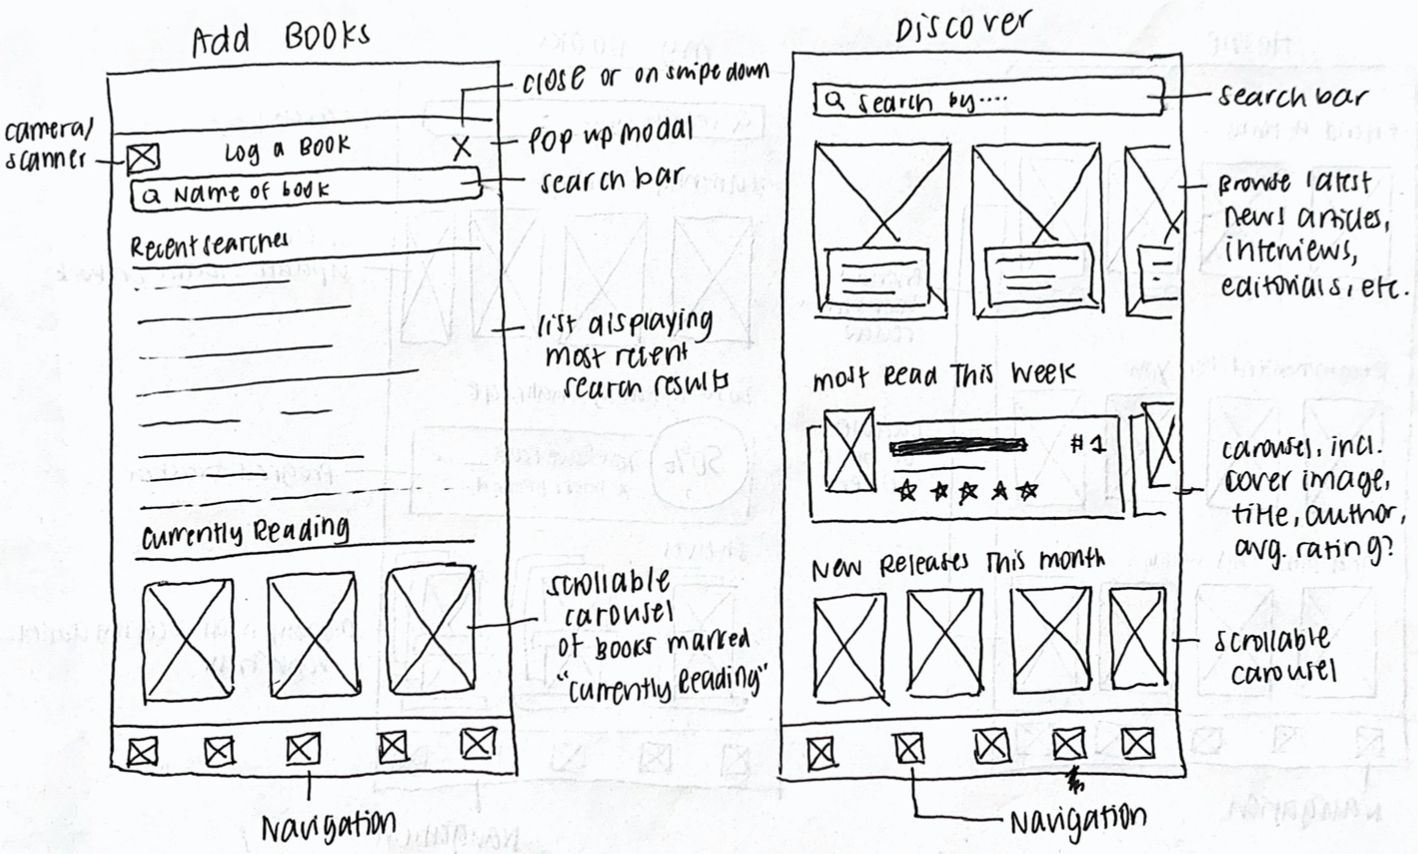 Add Books
close or on swipe down
camera/
scanner
Log a Book
X
Pop up modal
Name of book
search bar
Recent searches
list displaying
most recent
search results
Currently Reading
scrollable
carousel
of Books marked
"currently Reading"
Navigation
Discover
Search by....
search bar
Browse latest
news articles,
interviews,
editorials, etc.
Most Read This Week
#1
carousel, incl.
cover image,
title, author,
avg. rating?
New Releases This month
scrollable
carousel
Navigation